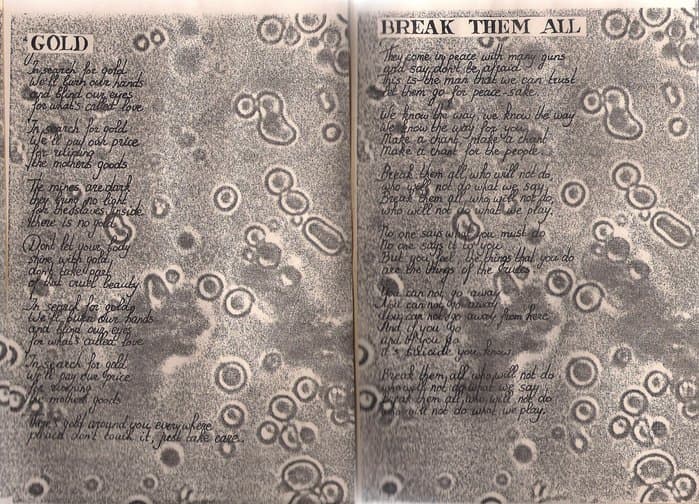 GOLD
In search for gold
We'll burn our hands
and blind our eyes
for what's called love
In search for gold
We'll pay our price
for
the mothers goods
The mines are dark
they bring no light
for the slaves inside
there is no gold
Dont let your body
shine with gold
dont take part
of that cruel beauty
In search for gold
We'll burn our hands
and blind our eyes
for what's called love
In search for gold
we'll pay our price
for
the mothers goods
there's gold around you everywhere
please don't touch it, just take care.
BREAK THEM ALL
They come in peace with many guns
and say don't be afraid
this is the man that we can trust
let them go for peace-sake.
We know the way, we know the way
We know the way for you
Make a chant, make a chant
Make a chant for the people.
Break them all, who will not do,
who will not do what we say
Break them all, who will not do,
who will not do what we play.
No one says what you must do
No one says it to you
But you feel the things that you do
are the things of the
You can not go away
You can not go away
You can not go away from here
And if you go
and if you go
it's suicide you know.
Break them all, who will not do
who will not do what we say
break them all, who will not do
who will not do what we play.